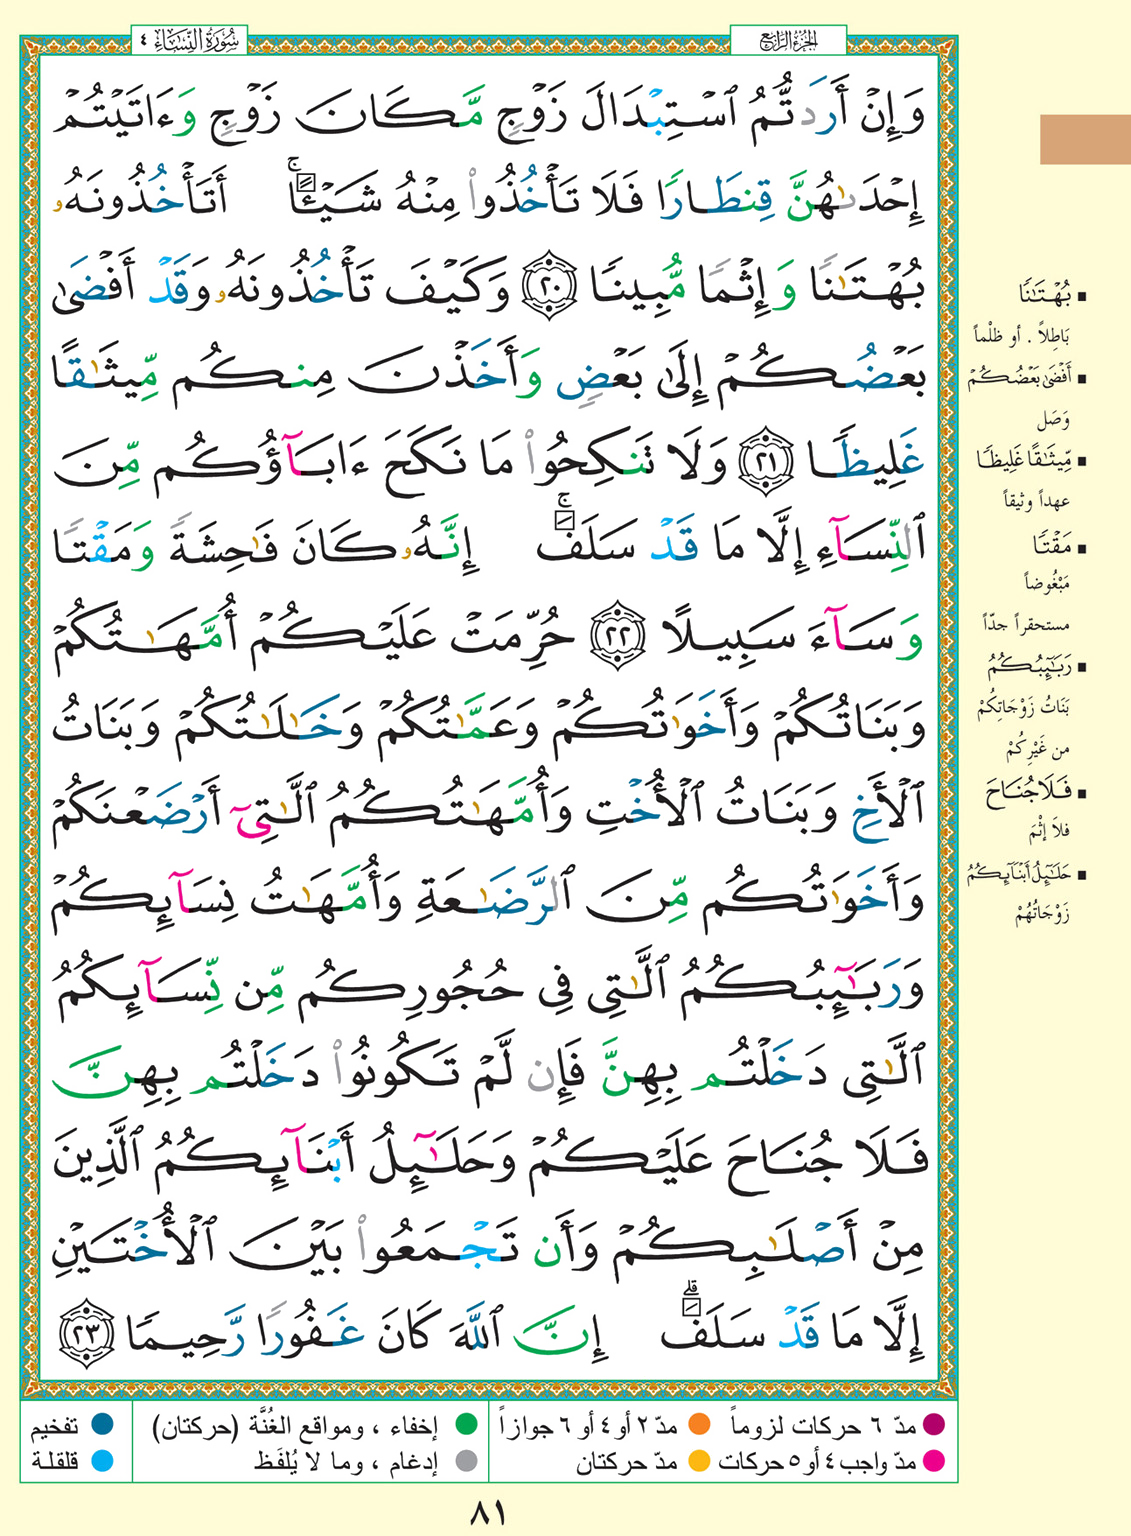 سُورَةُ النِّسَاءِ ٤
الجُزءُ الرَّابِع
وَإِنْ أَرَدتُّمُ ٱسْتِبْدَالَ زَوْجٍ مَّكَانَ زَوْجٍ وَءَاتَيْتُمْ
إِحْدَىٰهُنَّ قِنطَارًا فَلَا تَأْخُذُوا۟ مِنْهُ شَيْـًٔا ۚ أَتَأْخُذُونَهُۥ
بُهْتَـٰنًا وَإِثْمًا مُّبِينًا ٢٠ وَكَيْفَ تَأْخُذُونَهُۥ وَقَدْ أَفْضَىٰ
بَعْضُكُمْ إِلَىٰ بَعْضٍ وَأَخَذْنَ مِنكُم مِّيثَـٰقًا
غَلِيظًا ٢١ وَلَا تَنكِحُوا۟ مَا نَكَحَ ءَابَآؤُكُم مِّنَ
ٱلنِّسَآءِ إِلَّا مَا قَدْ سَلَفَ ۚ إِنَّهُۥ كَانَ فَـٰحِشَةً وَمَقْتًا
وَسَآءَ سَبِيلًا ٢٢ حُرِّمَتْ عَلَيْكُمْ أُمَّهَـٰتُكُمْ
وَبَنَاتُكُمْ وَأَخَوَٰتُكُمْ وَعَمَّـٰتُكُمْ وَخَـٰلَـٰتُكُمْ وَبَنَاتُ
ٱلْأَخِ وَبَنَاتُ ٱلْأُخْتِ وَأُمَّهَـٰتُكُمُ ٱلَّـٰتِىٓ أَرْضَعْنَكُمْ
وَأَخَوَٰتُكُم مِّنَ ٱلرَّضَـٰعَةِ وَأُمَّهَـٰتُ نِسَآئِكُمْ
وَرَبَـٰٓئِبُكُمُ ٱلَّـٰتِى فِى حُجُورِكُم مِّن نِّسَآئِكُمُ
ٱلَّـٰتِى دَخَلْتُم بِهِنَّ فَإِن لَّمْ تَكُونُوا۟ دَخَلْتُم بِهِنَّ
فَلَا جُنَاحَ عَلَيْكُمْ وَحَلَـٰٓئِلُ أَبْنَآئِكُمُ ٱلَّذِينَ
مِنْ أَصْلَـٰبِكُمْ وَأَن تَجْمَعُوا۟ بَيْنَ ٱلْأُخْتَيْنِ
إِلَّا مَا قَدْ سَلَفَ ۗ إِنَّ ٱللَّهَ كَانَ غَفُورًا رَّحِيمًا ٢٣
بُهْتَـٰنًا
بَاطِلاً . أو ظلْماً
أَفْضَىٰ بَعْضُكُمْ
وَصَل
مِّيثَـٰقًا غَلِيظًا
عهداً وثيقاً
مَقْتًا
مَبْغُوضاً
مستحقراً جدّاً
رَبَـٰٓئِبُكُمُ
بَنَاتُ زَوْجَاتِكُمْ
من غَيْرِكُمْ
فَلَا جُنَاحَ
فلاَ إثْمَ
حَلَـٰٓئِلُ أَبْنَآئِكُمُ
زَوْجَاتُهُمْ
مدّ ٦ حركات لزوماً
مدّ ٢ أو ٤ أو ٦ جوازاً
إخفاء ، ومواقع الغُنَّة (حركتان)
تفخيم
مدّ واجب ٤ أو ٥ حركات
مدّ حركتان
إدغام ، وما لا يُلفَظ
قلقلة
٨١